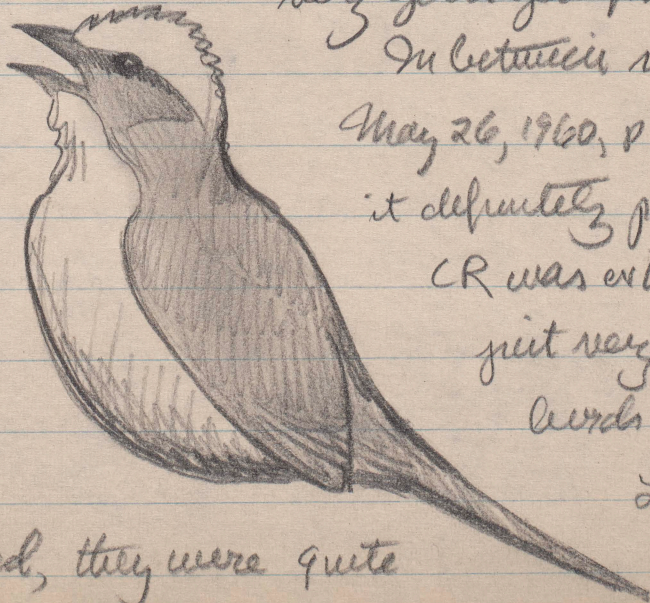 very
In between
May 26, 1960, p
it definitely p
CR was
just very
birds
d, they were quite